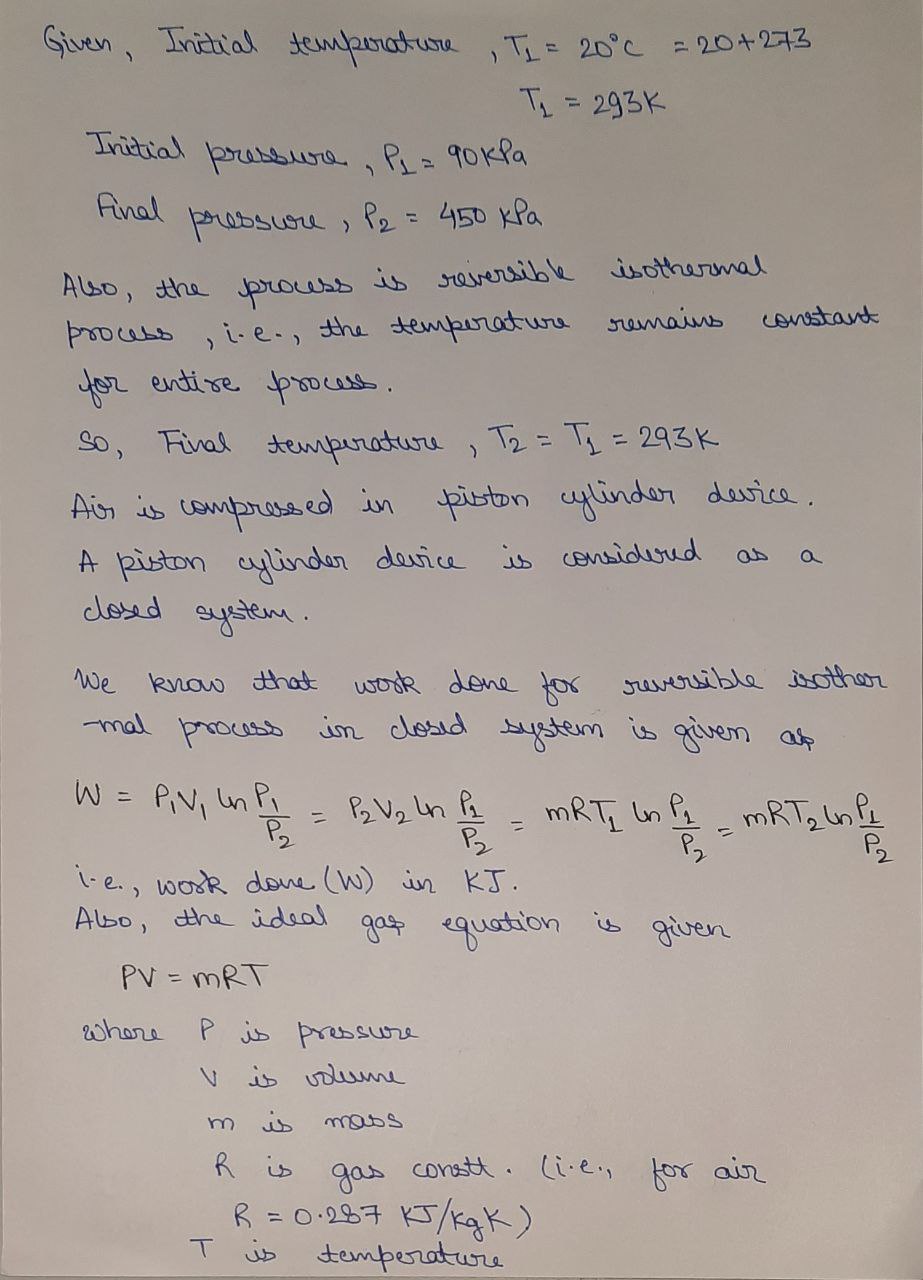 Given, Initial temperature, T₁ = 20°C = 20+273
T₁ = 293K
Initial pressure, P₁ = 90KPa
Final pressure, P₂ = 450 KPa
Also, the process is reversible isothermal
process, i.e., the temperature remains constant
for entire process.
So, Final temperature, T₂ = T₁ = 293K
Air is compressed in piston cylinder device.
A piston cylinder device is considered as a
closed system.
We know that work done for reversible isother
-mal process in closed system is given as
W = P₁V₁ ln P₁/P₂ = P₂V₂ ln P₁/P₂ = mRT₁ ln P₁/P₂ = mRT₂ ln P₁/P₂
i.e., work done (W) in KJ.
Also, the ideal gas equation is given
PV = mRT
where P is pressure
V is volume
m is mass
R is gas constt. (i.e., for air
R = 0.287 KJ/KgK)
T is temperature